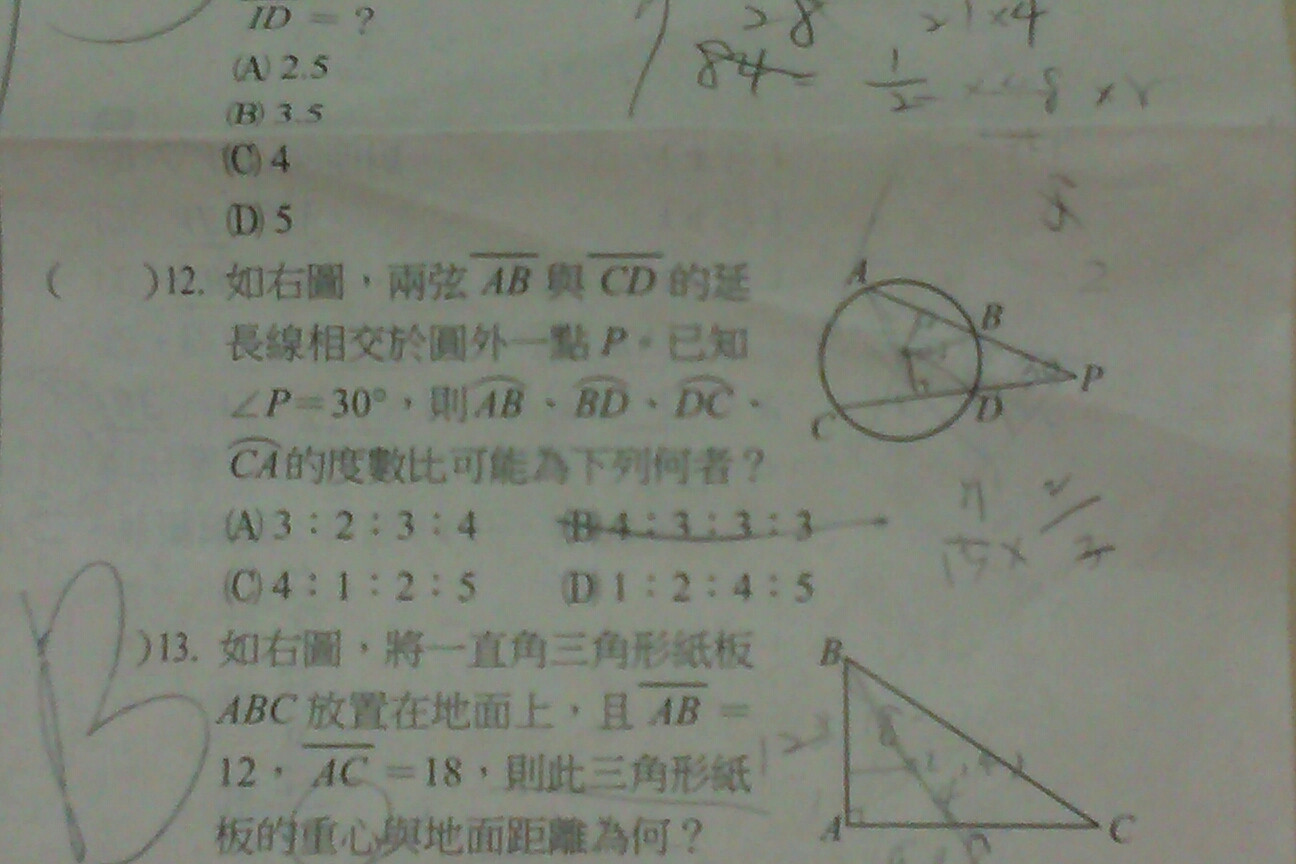 ID = ?
(A) 2.5
(B) 3.5
(C) 4
(D) 5
28 21×4
84 = 1/2 × 28 × r
( )12. 如右圖，兩弦 AB 與 CD 的延
長線相交於圓外一點 P。已知
∠P=30°，則 AB、BD、DC、
CA的度數比可能為下列何者？
(A) 3：2：3：4 (B) 4：3：3：3
(C) 4：1：2：5 (D) 1：2：4：5
A B P D C
B )13. 如右圖，將一直角三角形紙板
ABC 放置在地面上，且 AB =
12，AC =18，則此三角形紙
板的重心與地面距離為何？
B A C